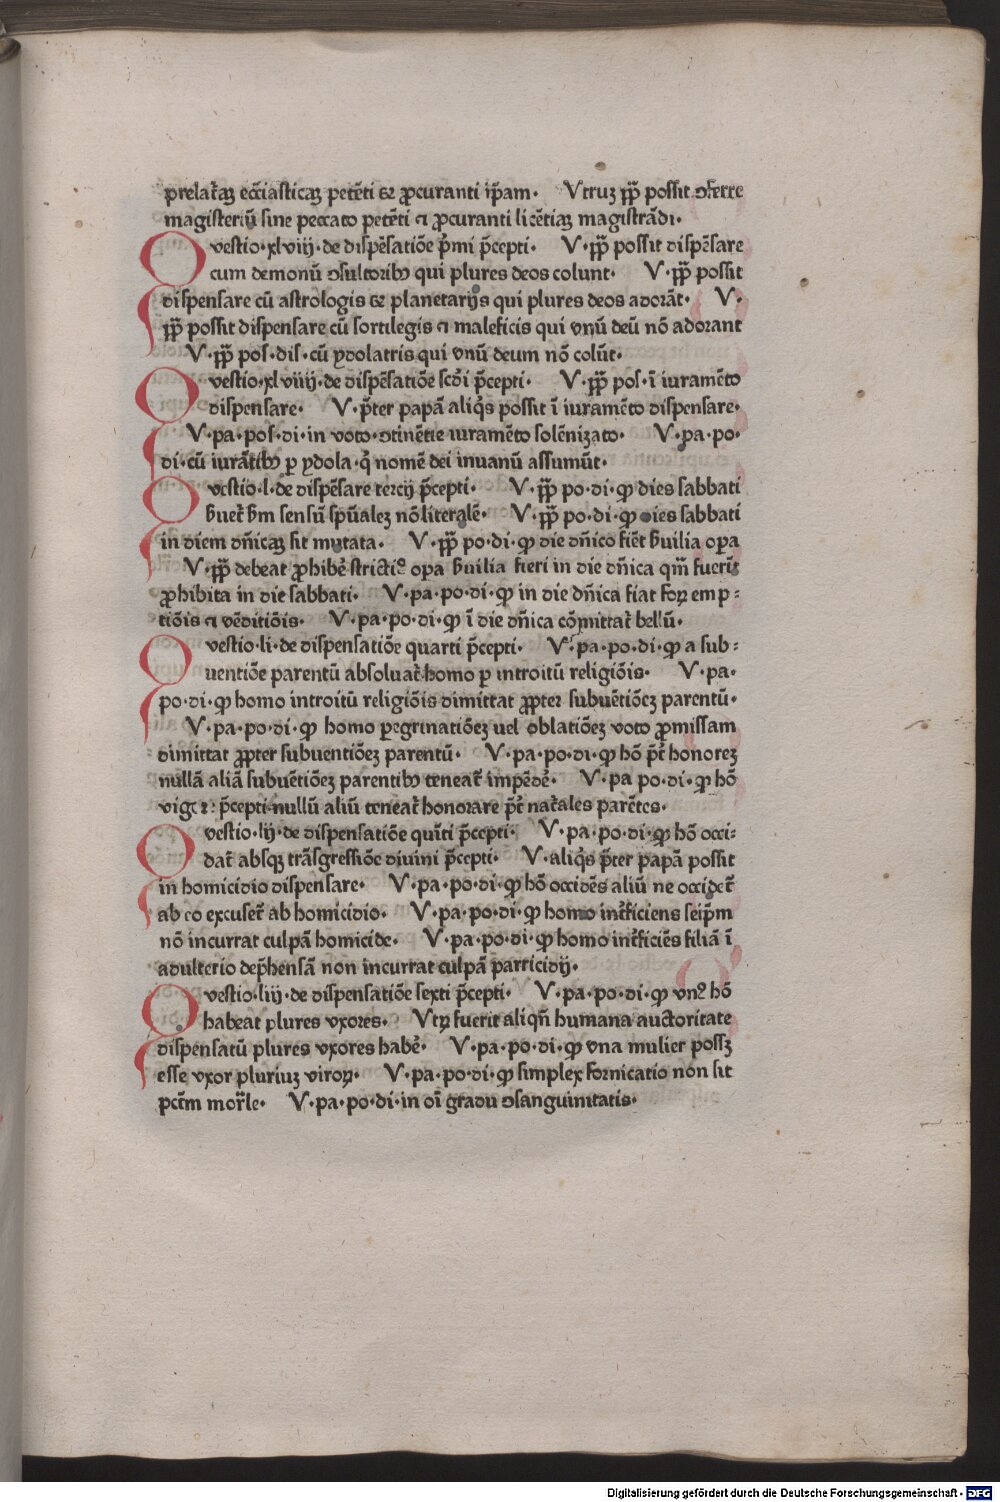 prelat̃aꝫ ecc̃iasticaꝫ petẽti et ꝓcuranti ip̃am· Vtruꝫ ꝓp̃ possit ꝯferre
magisteriũ sine peccato petẽti ⁊ ꝓcuranti licẽtiaꝫ magistrãdi·
Qvestio·xlviij·de dispẽsatiõe p̃mi p̃cepti· V·ꝓp̃ possit dispẽsare
cum demonũ ꝯsultoribꝰ qui plures deos colunt· V·ꝓp̃ possit
dispensare cũ astrologis et planetarijs qui plures deos adorãt· V·
ꝓp̃ possit dispensare cũ sortilegis ⁊ maleficis qui vnũ deũ nõ adorant
V·ꝓp̃ pos·dis·cũ ydolatris qui vnũ deum nõ colũt·
Qvestio·xlviiij·de dispẽsatiõe scd̃i p̃cepti· V·ꝓp̃ pos·ĩ iuramẽto
dispensare· V·p̃ter papã aliq̃s possit ĩ iuramẽto dispensare·
V·pa·pos·di·in voto·ꝯtinẽtie iuramẽto solẽnizato· V·pa·po·
di·cũ iurãtibꝰ ꝑ ydola·q̃ nomẽ dei inuanũ assumũt·
Qvestio·l·de dispẽsare tercij p̃cepti· V·ꝓp̃ po·di·ꝙ dies sabbati
ẜuet̃ ẜm sensũ spũaleꝫ nõ literalẽ· V·ꝓp̃ po·di·ꝙ dies sabbati
in diem dñicaꝫ sit mutata· V·ꝓp̃ po·di·ꝙ die dñico fiẽt ẜuilia oꝑa
V·ꝓp̃ debeat ꝓhibẽ stricti⁹ oꝑa ẜuilia fieri in die dñica qm̃ fuerĩt
ꝓhibita in die sabbati· V·pa·po·di·ꝙ in die dñica fiat foꝝ emp⸗
tiõis ⁊ vẽditiõis· V·pa·po·di·ꝙ ĩ die dñica cõmittat̃ bellũ·
Qvestio·li·de dispensatiõe quarti p̃cepti· V·pa·po·di·ꝙ a sub⸗
uentiõe parentũ absoluat̃ homo ꝑ introitũ religiõis· V·pa·
po·di·ꝙ homo introitũ religiõis dimittat ꝓpter subuẽtiõeꝫ parentũ·
V·pa·po·di·ꝙ homo ꝑegrinatiõeꝫ uel oblatiõeꝫ voto ꝓmissam
dimittat ꝓpter subuentiõeꝫ parentũ· V·pa·po·di·ꝙ hõ p̃t̃ honoreꝫ
nullã aliã subuẽtiõeꝫ parentibꝰ teneat̃ impẽdẽ· V·pa po·di·ꝙ hõ
p̃cepti·nullũ aliũ teneat̃ honorare p̃t̃ nat̃ales parẽtes·
Qvestio·lij·de dispensatiõe quĩti p̃cepti· V·pa·po·di·ꝙ hõ occi⸗
dat̃ absqꝫ trãsgressiõe diuini p̃cepti· V·aliq̃s p̃ter papã possit
in homicidio dispensare· V·pa·po·di·ꝙ hõ occidẽs aliũ ne occidet̃
ab eo excuset̃ ab homicidio· V·pa·po·di·ꝙ homo int̃ficiens seip̃m
nõ incurrat culpã homicide· V·pa·po·di·ꝙ homo int̃ficiẽs filiã ĩ
adulterio dep̃hensã non incurrat culpã parricidij·
Qvestio·liij·de dispensatiõe sexti p̃cepti· V·pa·po·di·ꝙ vn⁹ hõ
habeat plures vxores· Vtꝝ fuerit aliqñ humana auctoritate
dispensatũ plures vxores habẽ· V·pa·po·di·ꝙ vna mulier possꝫ
esse vxor pluriuꝫ viroꝝ· V·pa·po·di·ꝙ simplex fornicatio non sit
pctm̃ mor̃le· V·pa·po·di·in oĩ gradu ꝯsanguinitatis·
Digitalisierung gefördert durch die Deutsche Forschungsgemeinschaft - DFG